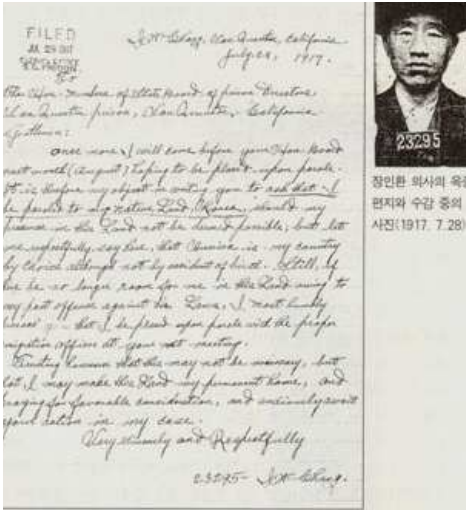 FILED
JUL 29 1917
San Quentin, California
July 28, 1917.
Hon. Members of State Board of prison Directors
San Quentin prison, San Quentin, California
Gentlemen:
once more, I will come before your Hon. Board
next month (August) hoping to be placed upon parole.
It is therefore my object in writing you to ask that I
be paroled to my native Land (Korea), should my
presence in this Land not be deemed possible; but let
me respectfully say here, that America is my country
by choice although not by accident of birth. Still, if
there be no longer room for me in this Land owing to
my past offense against the Laws, I most humbly
that I be placed upon parole with the proper
officers at your next meeting.
Trusting however that this may not be necessary, but
that I may make this Land my permanent home, and
hoping for favorable consideration, and anxiously await
your action in my case.
Very sincerely and Respectfully
23295 -
23295
장인환 의사의 옥중
편지와 수감 중의
사진(1917. 7.28)